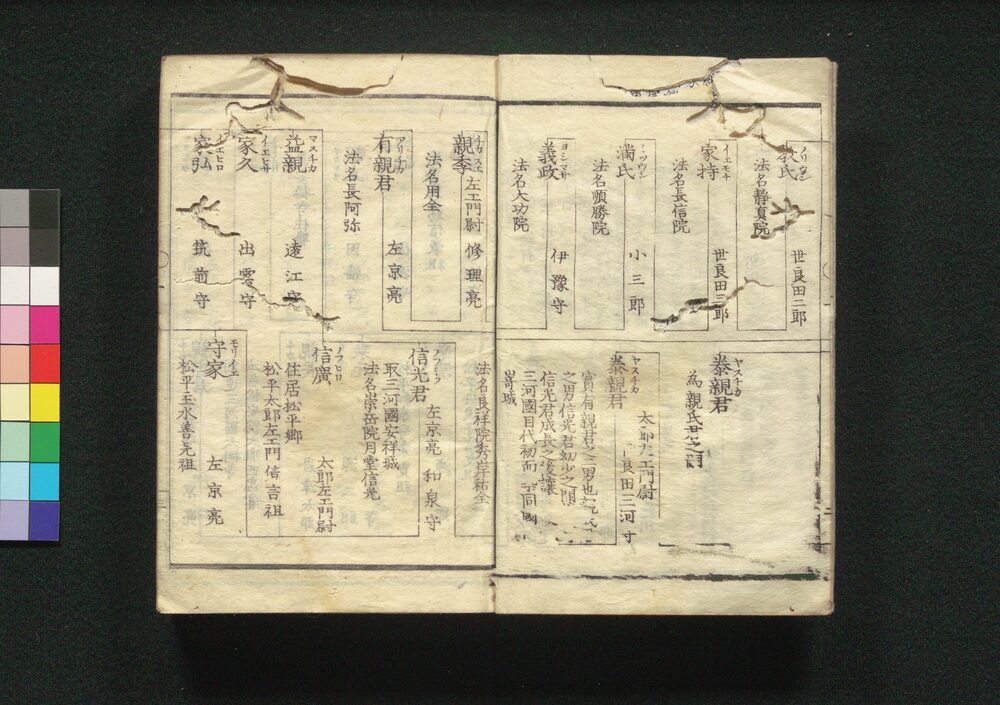 ノリウシ
教氏
世良田二郎
法名静真院
イエモチ
家持
世良田三郎
法名長信院
ミツウシ
満氏
小三郎
法名顕勝院
ヨシマサ
義政
伊豫守
法名大功院
ヤスチカ
泰親君
為親氏君之嗣
ヤスチカ
泰親君
太郎左エ門尉
良田三河守
實有親君之二男也親氏
之男信光君幼少之間
信光君成長之後讓
三河國目代初而 同國
嵜城
チカスエ
親季
左エ門尉 修理亮
法名用全
アリチカ
有親君
左京亮
法名長阿弥
マスチカ
益親
遠江守
イエヒサ
家久
出雲守
イエヒロ
家弘
筑前守
法名良祥院秀岸祐全
ノフミツ
信光君
左京亮 和泉守
取三河國安祥城
法名崇岳院月堂信光
ノフヒロ
信廣
太郎左エ門尉
住居松平郷
松平太郎左エ門信言祖
モリイエ
守家
左京亮
松平玉水善兄祖